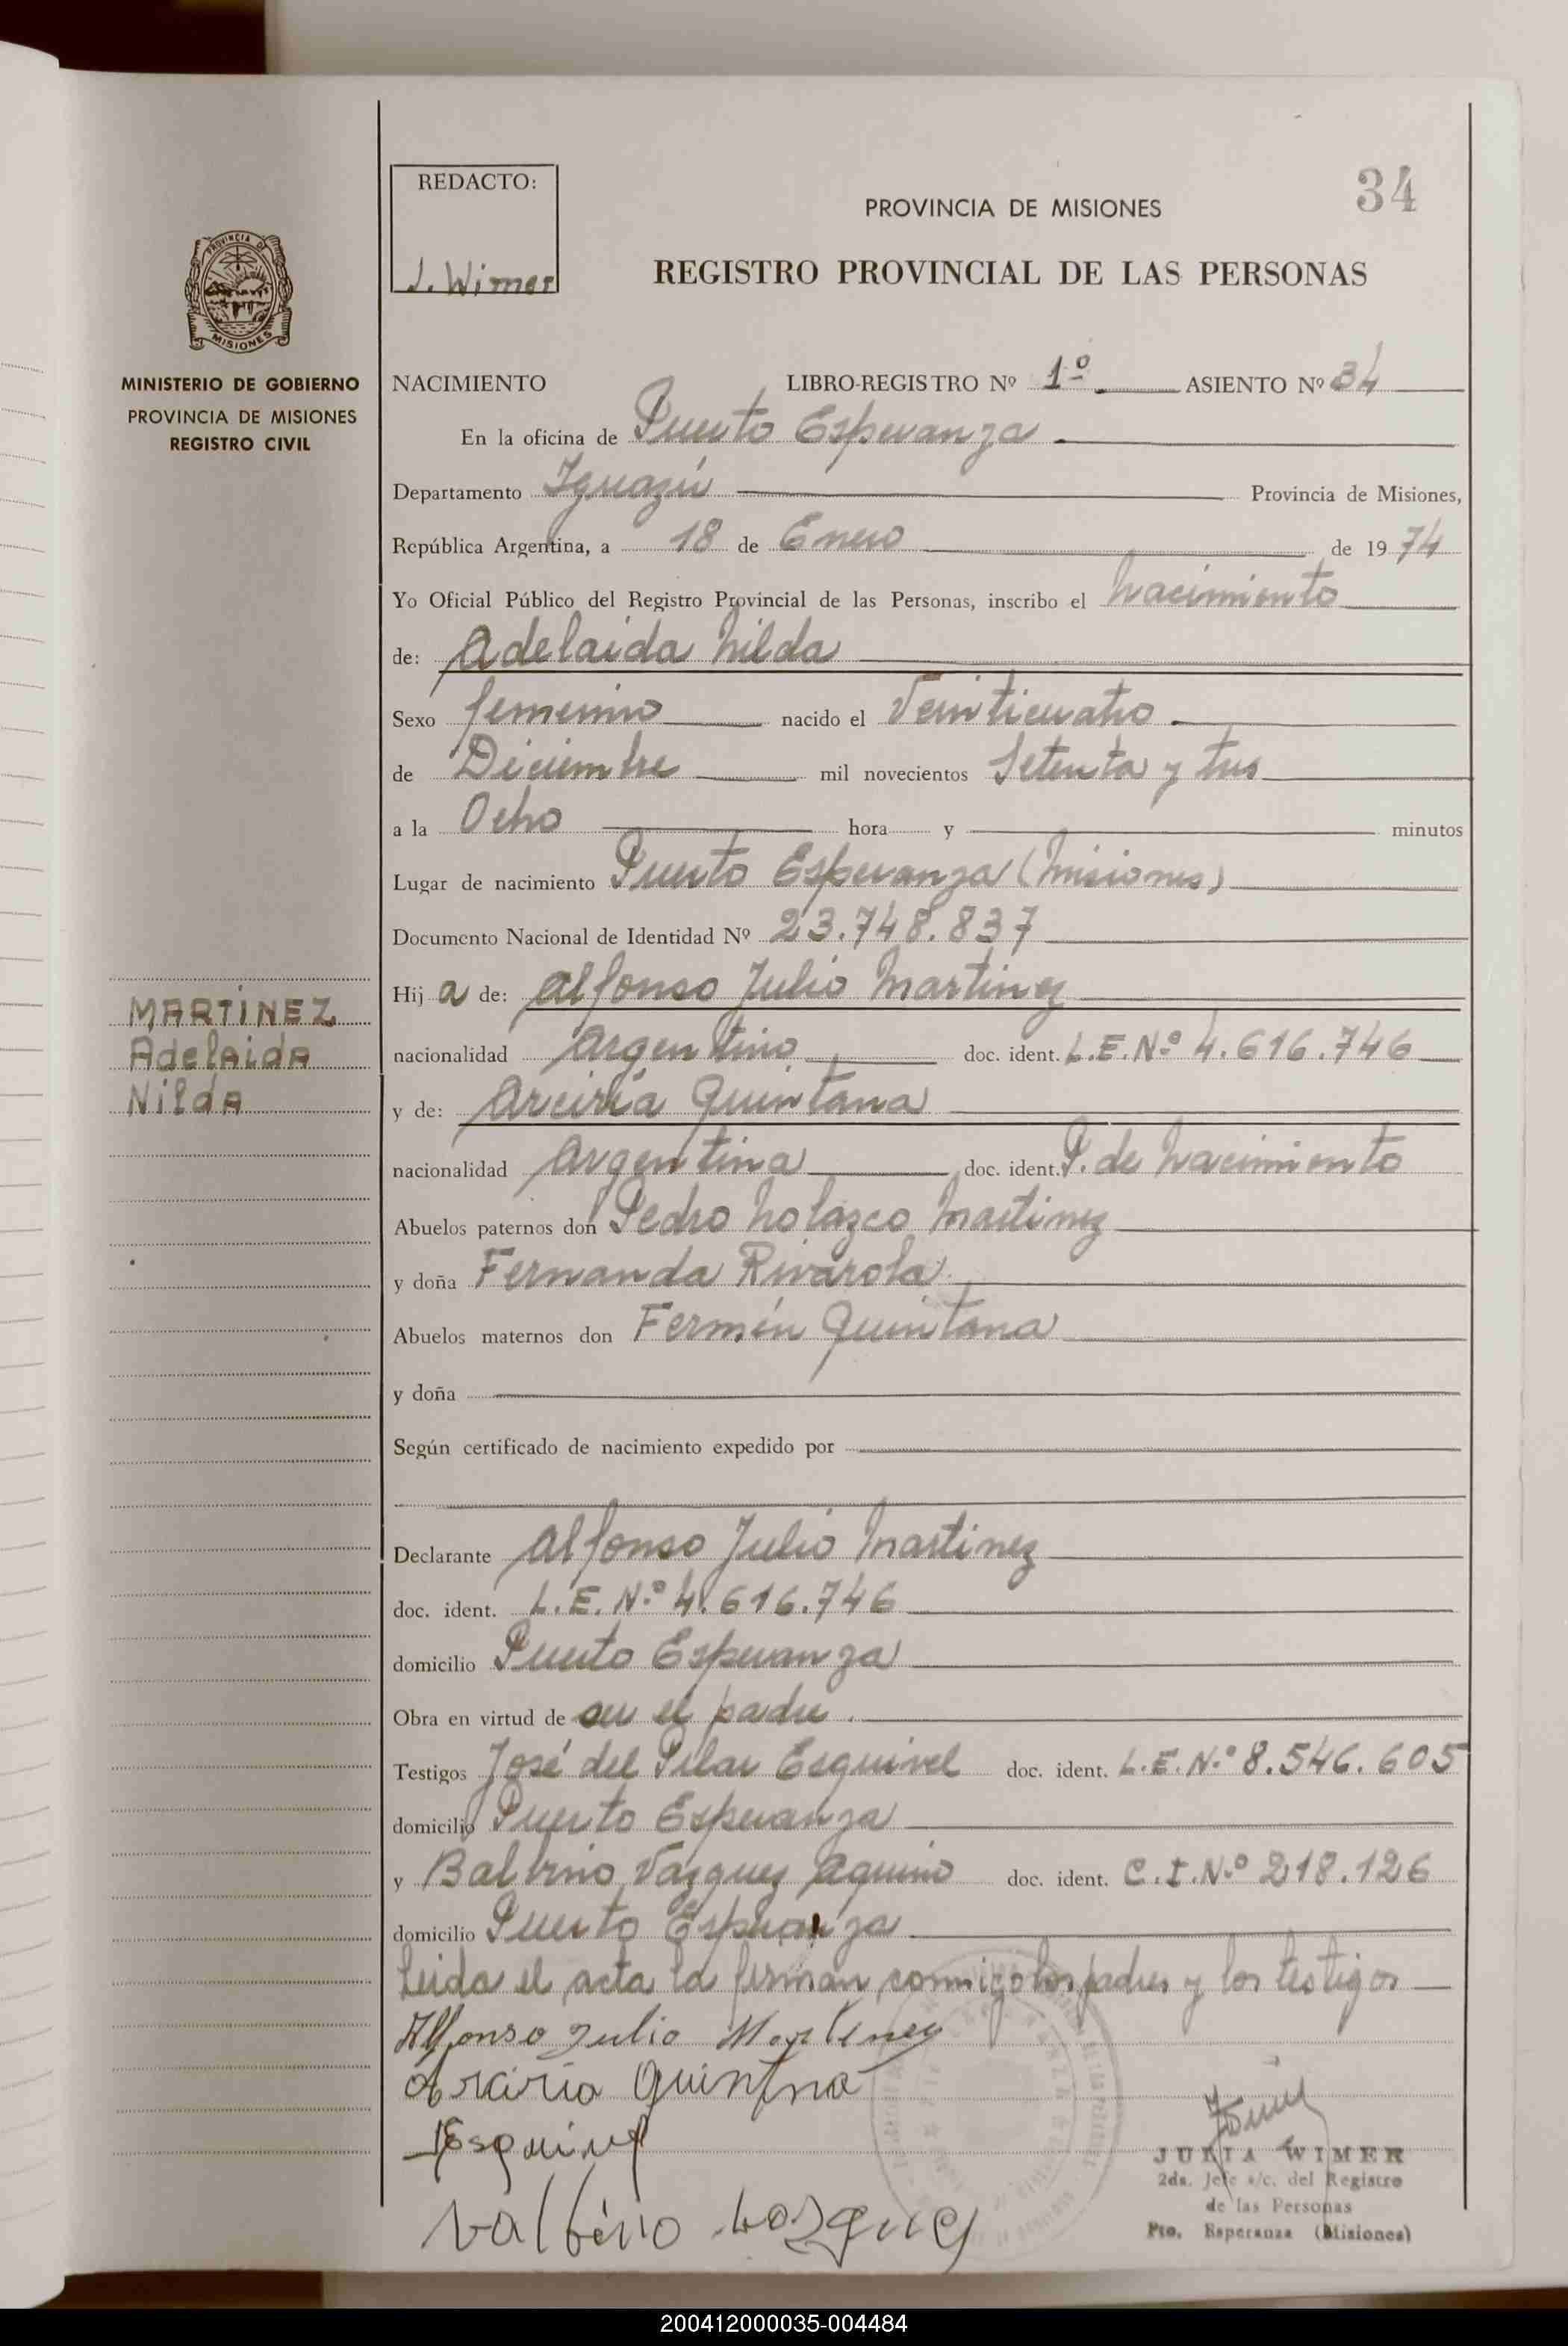 34
REDACTO:
J. Wimer
PROVINCIA DE MISIONES
REGISTRO PROVINCIAL DE LAS PERSONAS
PROVINCIA DE
MISIONES
MINISTERIO DE GOBIERNO
PROVINCIA DE MISIONES
REGISTRO CIVIL
NACIMIENTO LIBRO-REGISTRO Nº 1º ASIENTO Nº 34
En la oficina de Puerto Esperanza
Departamento Iguazú Provincia de Misiones,
República Argentina, a 18 de Enero de 1974
Yo Oficial Público del Registro Provincial de las Personas, inscribo el Nacimiento
de: Adelaida Nilda
Sexo femenino nacido el Veinticuatro
de Diciembre mil novecientos Setenta y tres
a la Ocho hora y minutos
Lugar de nacimiento Puerto Esperanza (Misiones)
Documento Nacional de Identidad Nº 23.748.837
Hij a de: Alfonso Julio Martinez
MARTÍNEZ
Adelaida
Nilda
nacionalidad Argentino doc. ident. L.E.Nº 4.616.746
y de: Arciria Quintana
nacionalidad Argentina doc. ident. P. de Nacimiento
Abuelos paternos don Pedro Nolazco Martinez
y doña Fernanda Rivarola
Abuelos maternos don Fermín Quintana
y doña
Según certificado de nacimiento expedido por
Declarante Alfonso Julio Martinez
doc. ident. L.E. Nº 4.616.746
domicilio Puerto Esperanza
Obra en virtud de ser el padre.
Testigos José del Pilar Esquivel doc. ident. L.E.Nº 8.546.605
domicilio Puerto Esperanza
y Balbino Vazquez Aquino doc. ident. C.I.Nº 218.126
domicilio Puerto Esperanza
Leida el acta la firman conmigo los padres y los testigos
Alfonso Julio Martinez
Arciria Quintna
Esquivel
JULIA WIMER
2da. Jefe a/c. del Registro
de las Personas
Pto. Esperanza (Misiones)
200412000035-004484